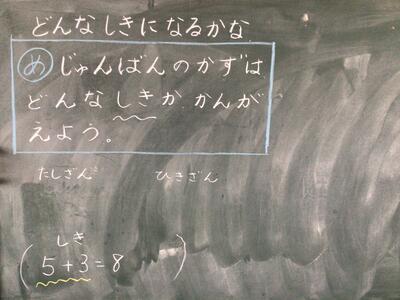 どんなしきになるかな
め じゅんばんのかずは
どんなしきか かんが
えよう。
たしざん ひきざん
しき
(5+3=8 )